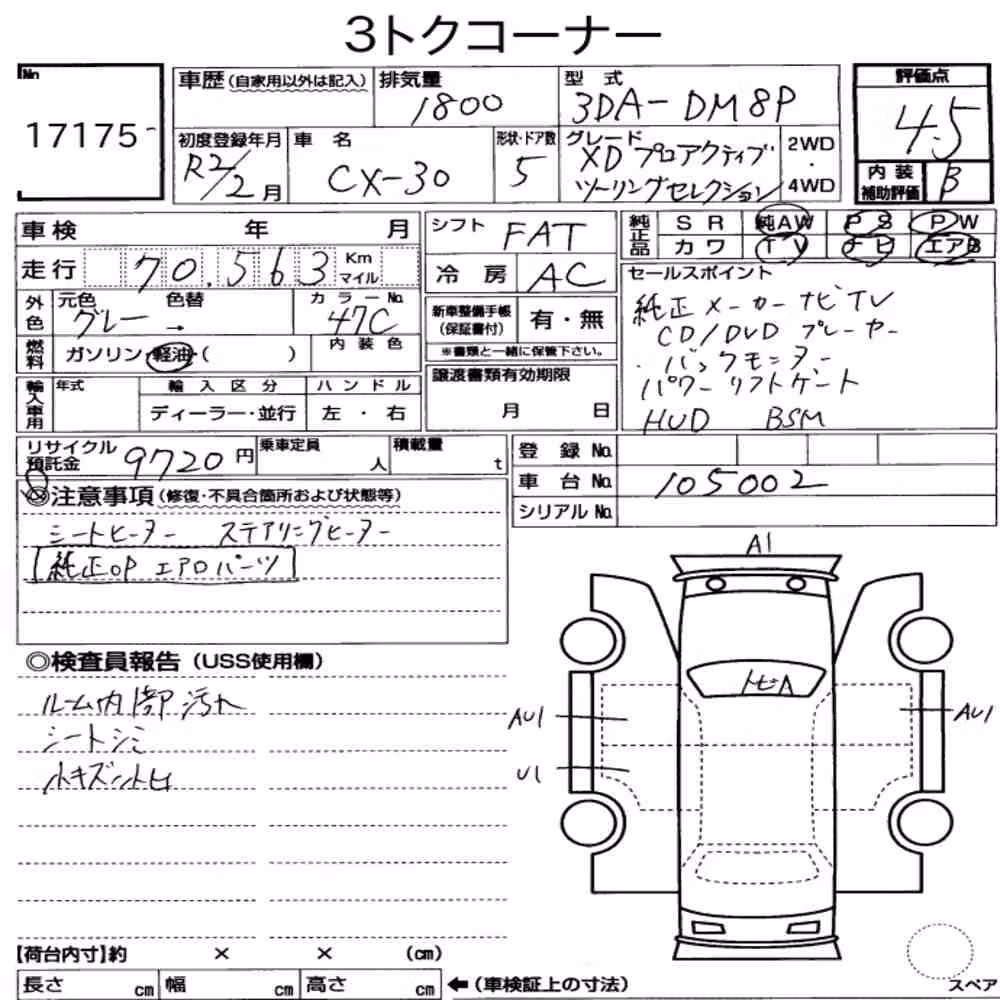 3トクコーナー
No
17175
車歴 (自家用以外は記入)
排気量
1800
型 式
3DA-DM8P
評価点
4.5
初度登録年月
R2/2月
車 名
CX-30
形状・ドア数
5
グレード
XD プロアクティブ
ツーリングセレクション
2WD
・
4WD
内 装
補助評価
B
車検 年 月
シフト
FAT
純正品
S R 純AW P S P W
カ ワ T V ナ ビ エアB
走行 70,563 Km
マイル
冷 房
AC
セールスポイント
純正メーカーナビTV
CD/DVD プレーヤー
バックモニター
パワーリフトゲート
HUD BSM
外色
元色 色替
グレー →
カラーNo.
47C
新車整備手帳
(保証書付)
有・無
※書類と一緒に保管下さい。
燃料
ガソリン・軽油・( )
内 装 色
輸入車用
年式
輸 入 区 分
ハ ン ド ル
ディーラー・並行
左 ・ 右
譲渡書類有効期限
月 日
リサイクル
預託金
9720円
乗車定員
人
積載量
t
登 録 No.
車 台 No. 105002
シリアル No.
◎注意事項 (修復・不具合箇所および状態等)
シートヒーター ステアリングヒーター
純正OP エアロパーツ
◎検査員報告 (USS使用欄)
ルーム内部汚れ
シートシミ
小キズ小ヒ
A1
トビA
AU1
AU1
U1
【荷台内寸】約 × × (cm)
長さ cm
幅 cm
高さ cm
←(車検証上の寸法)
スペア